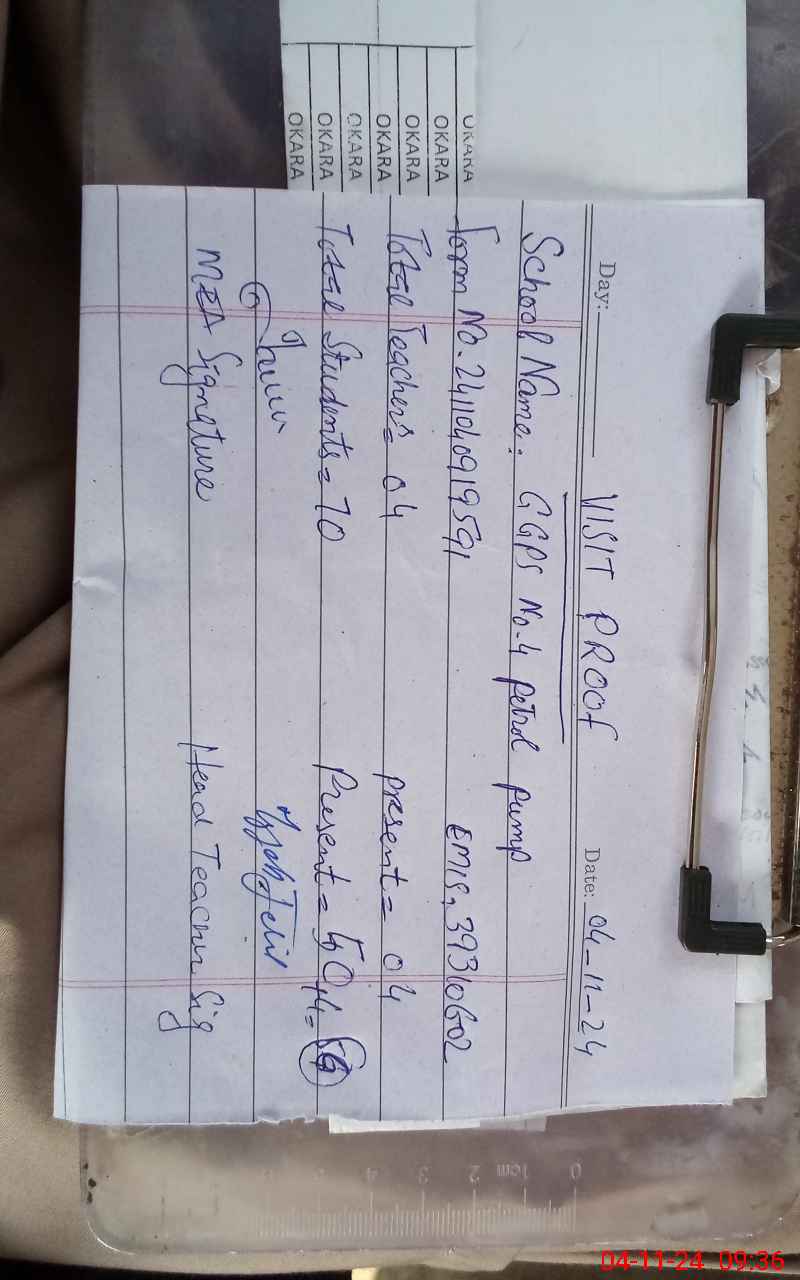 OKARA
OKARA
OKARA
OKARA
OKARA
OKARA
OKARA
Day: Date: 04-11-24
VISIT PROOF
School Name: GGPS No.4 petrol pump
Form No. 2411040919591 EMIS. 39310602
Total Teachers = 04 present = 04
Total Students = 70 Present =
MEA Signature Head Teacher Sig
0 1cm 2 3 4
04-11-24 09:36